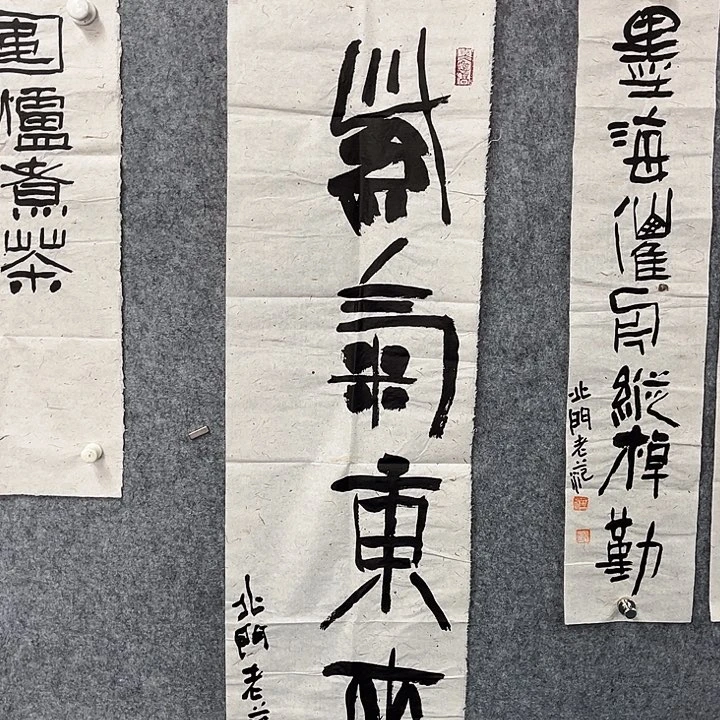 墨海催舟縱棹勤
北門老范
紫氣東來
北門老范
圍爐煮茶